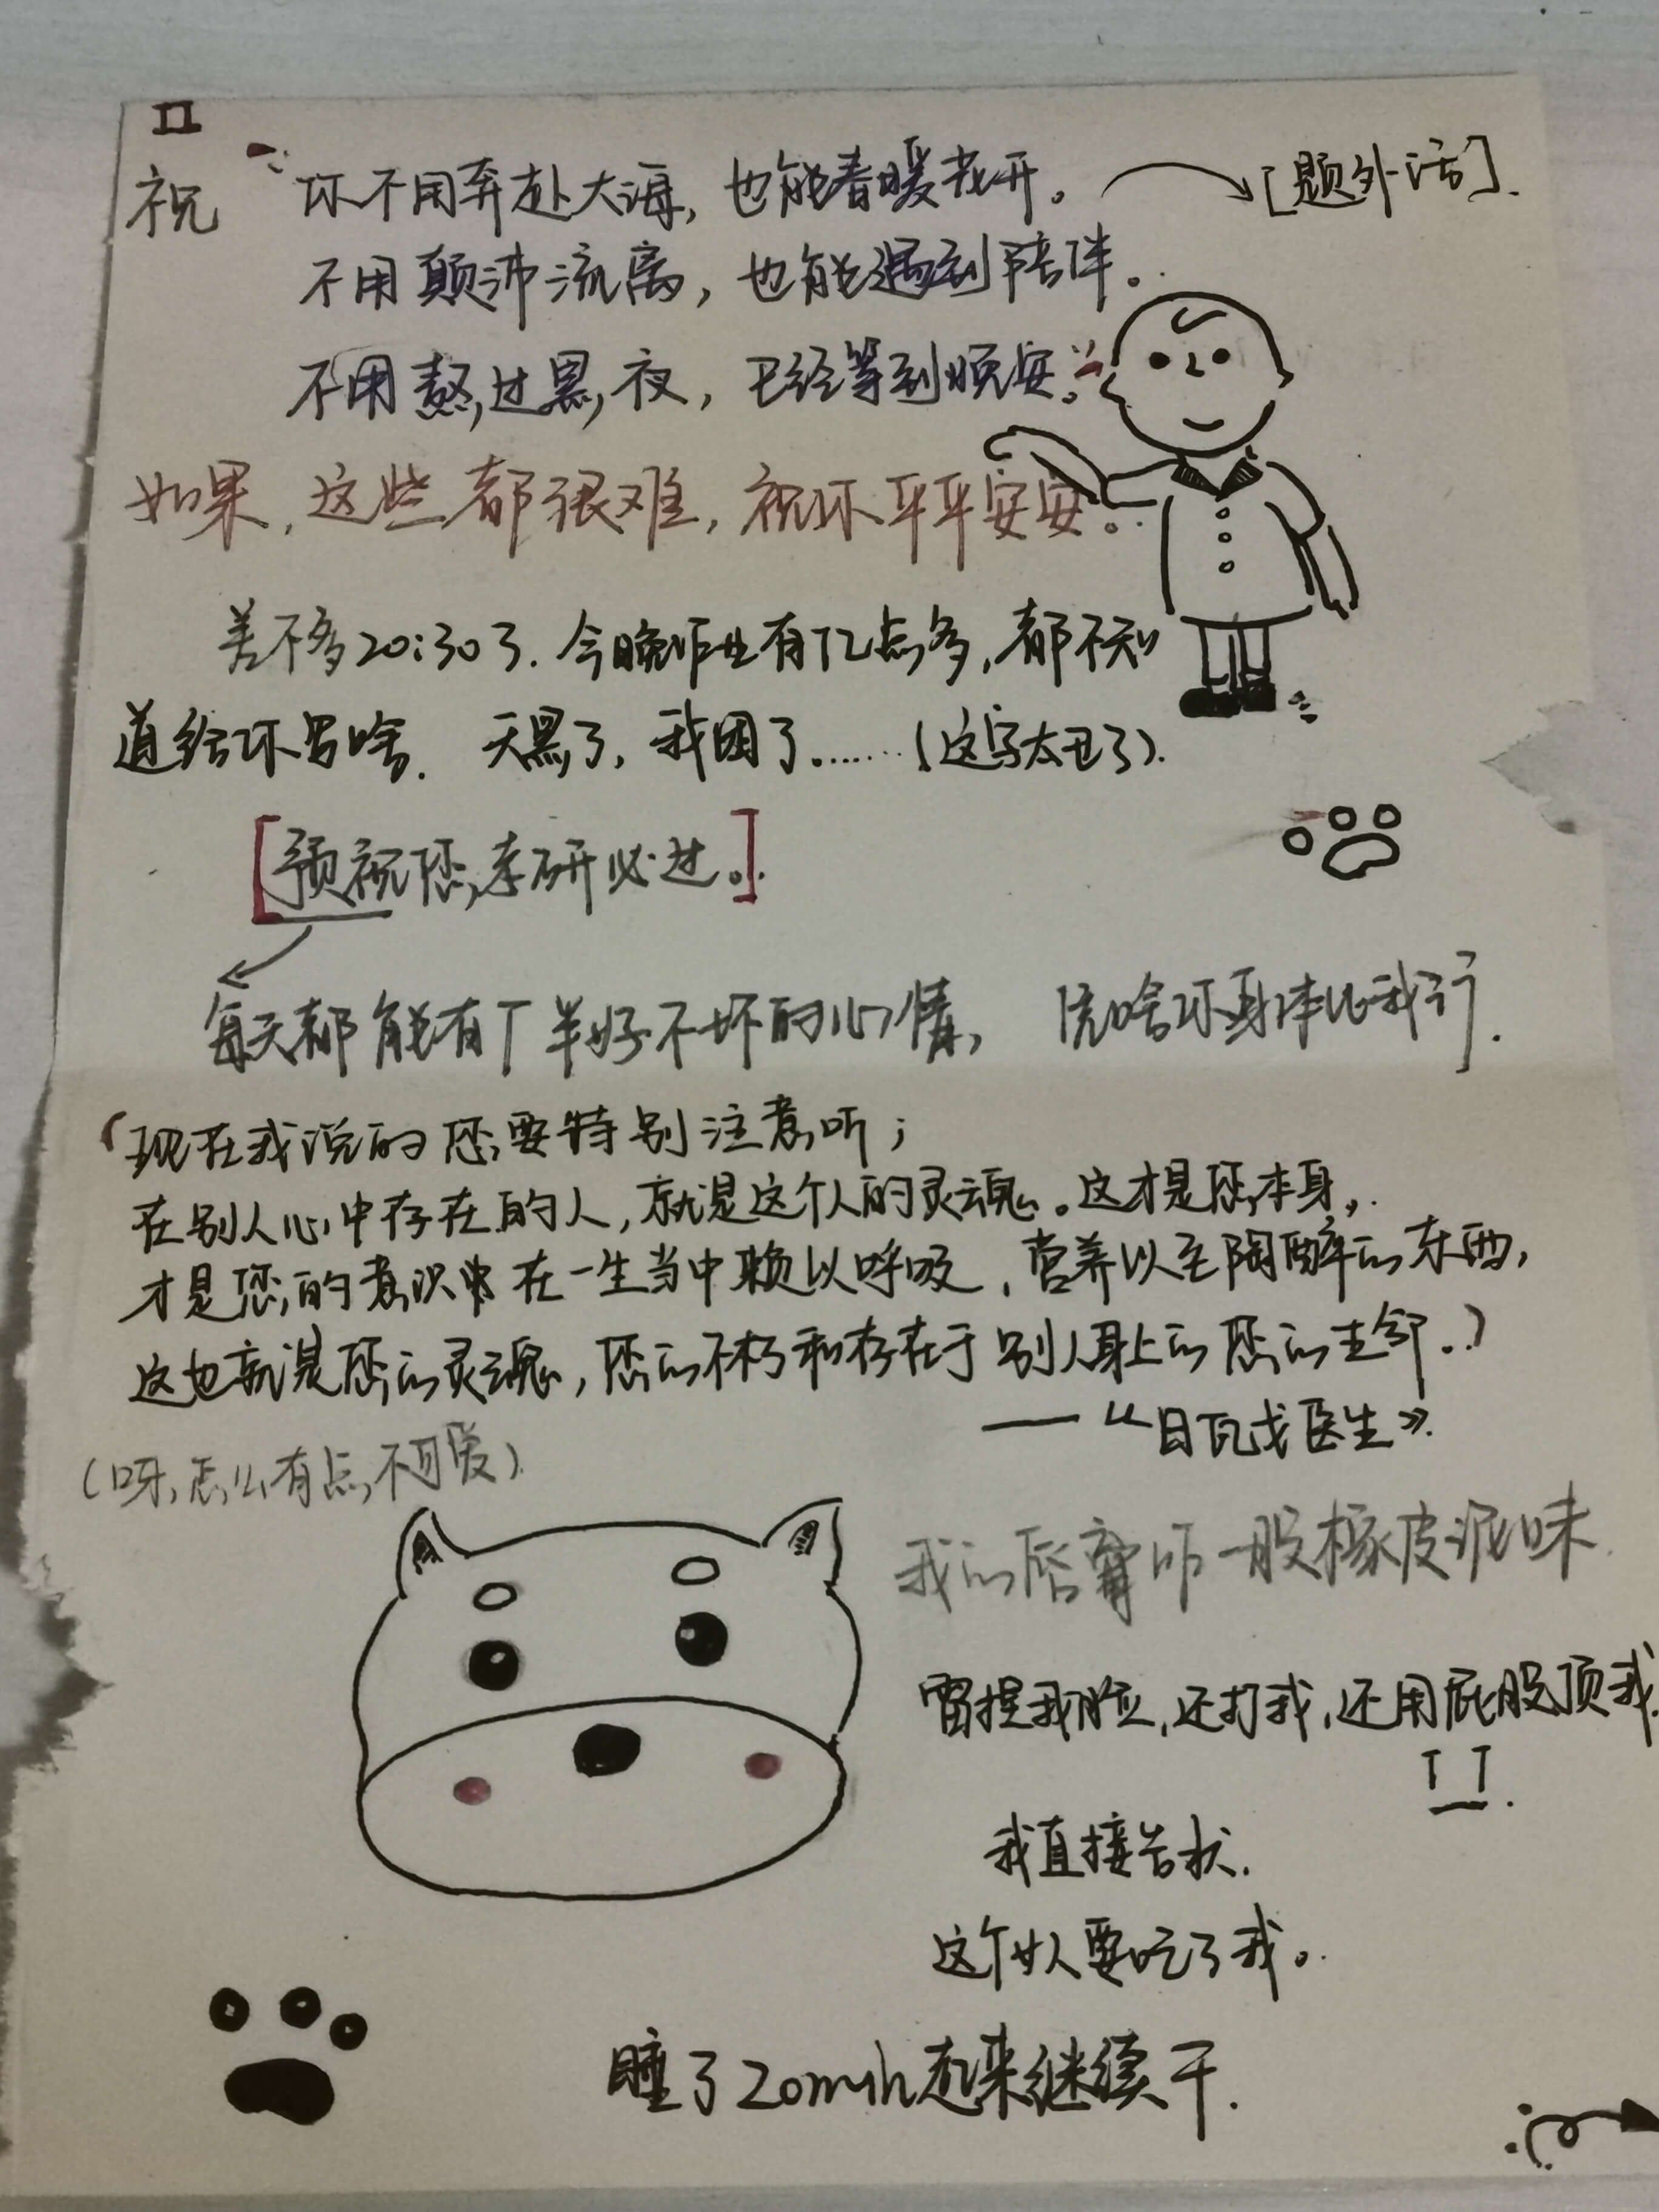 祝 你不用奔赴大海，也能春暖花开。 [题外话].
不用颠沛流离，也能遇到陪伴。
不用熬过黑夜，已经等到晚安。
如果，这些都很难，祝你平平安安。
差不多20:30了.今晚作业有亿点多,都不知
道给你写啥. 天黑了，我困了……(这字太丑了).
[预祝您考研必过。]
每天都能有个半好不坏的心情， 凭啥你身体比我行.
“现在我说的您要特别注意听；
在别人心中存在的人，就是这个人的灵魂。这才是您本身，
才是您的意识 在一生当中赖以呼吸，营养以至陶醉的东西，
这也就是您的灵魂，您的不朽和存在于别人身上的您的生命.）
——“日瓦戈医生》
(呀，怎么有点不可爱)
我的唇膏咋一股橡皮泥味
捏我脸，还打我，还用屁股顶我.
我直接告状.
这个女人要吃了我。
睡了20min起来继续干.